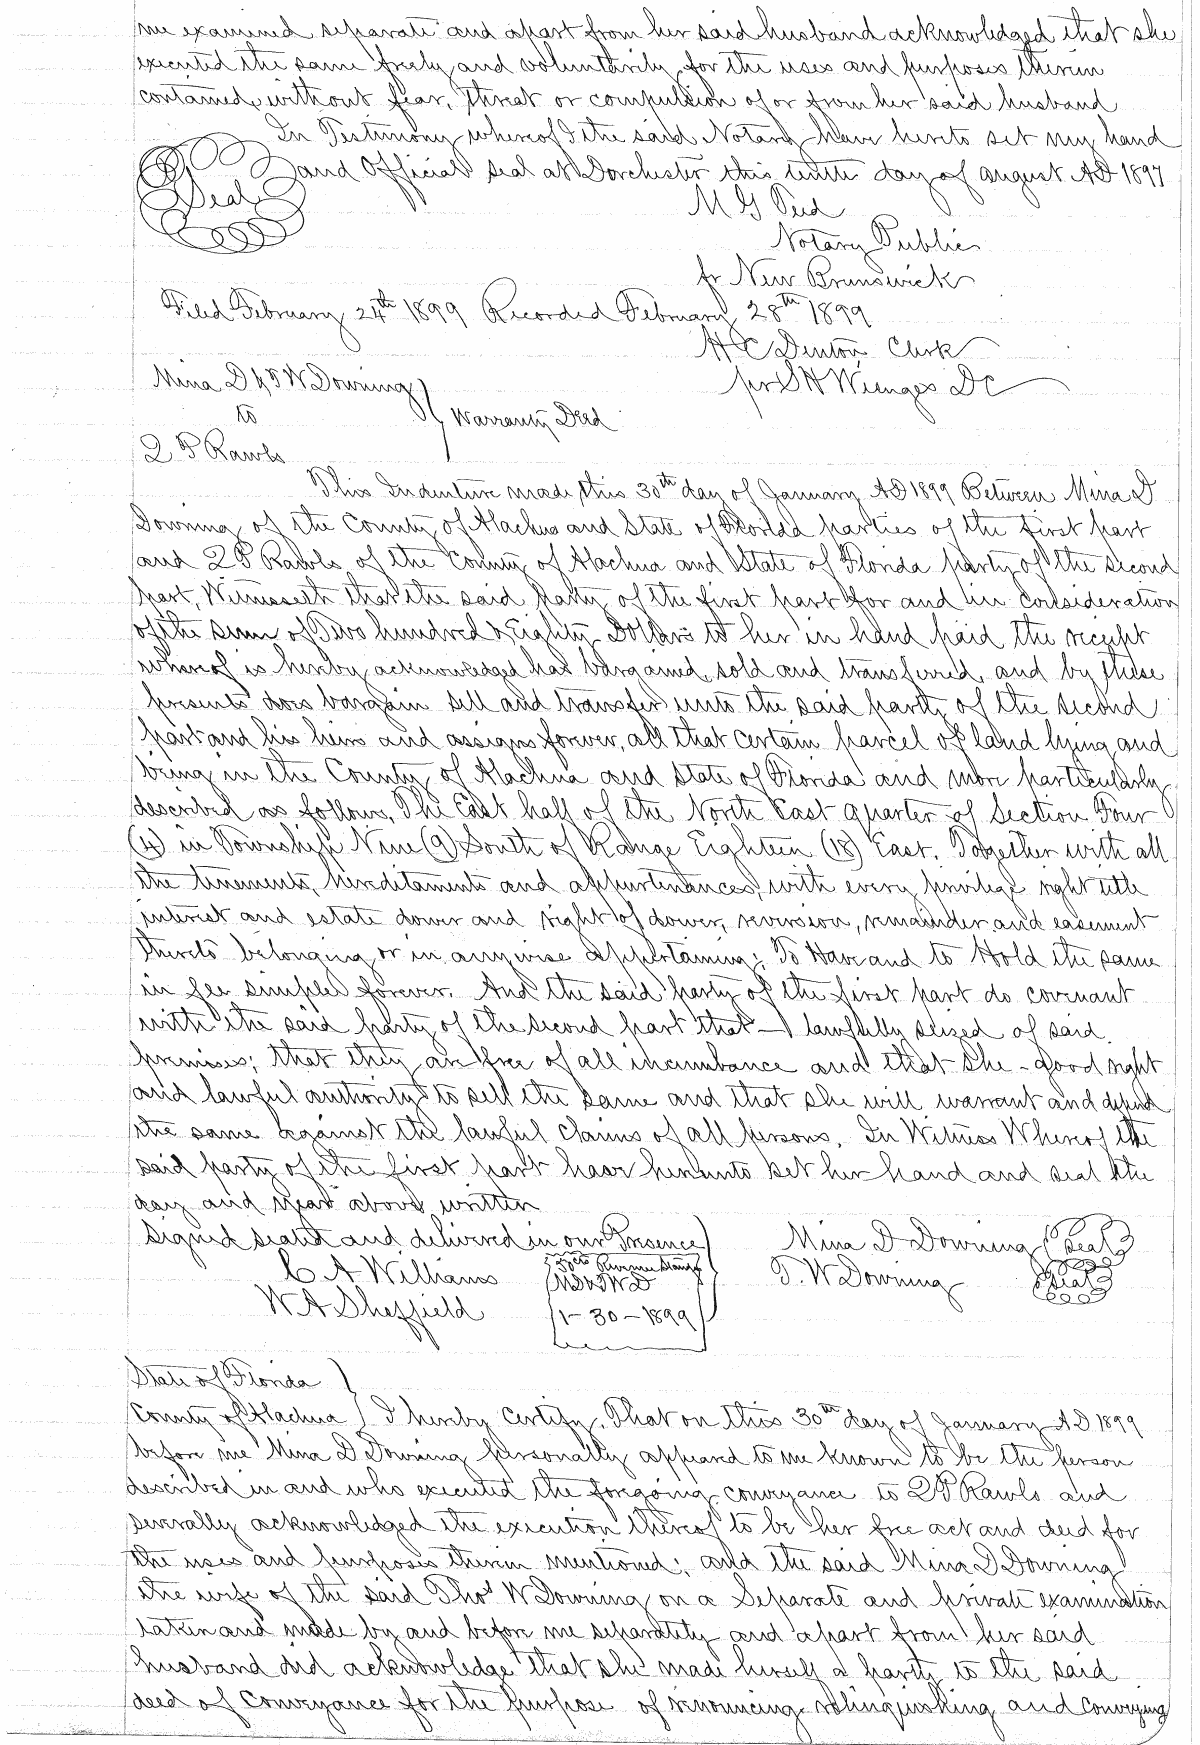 me examined separate and apart from her said husband acknowledged that she
executed the same freely and voluntarily for the uses and purposes therein
contained, without fear, threat or compulsion of or from her said husband
In Testimony whereof I the said Notary have hereto set my hand
Seal and Official seal at Dorchester this tenth day of august AD 1897
M G
Notary Public
for New Brunswick
Filed February 24th 1899 Recorded February 28th 1899
H C Denton Clerk
per S H Wienges DC
Mina D & T W Downing
to
Warranty Deed
Q P Rawls
This Indenture made, this 30th day of January AD 1899 Between Mina D
Downing of the County of Alachua and State of Florida parties of the first part
and Q P Rawls of the County of Alachua and State of Florida party of the second
part, Witnesseth that the said party of the first part for and in consideration
of the sum of Two hundred & Eighty Dollars to her in hand paid the receipt
whereof is hereby acknowledged has bargained, sold and transferred, and by these
presents does bargain sell and transfer unto the said party of the second
part and his heirs and assigns forever, all that certain parcel of land lying and
being in the County of Alachua and State of Florida and more particularly
described as follows, The East half of the North East quarter of Section Four
(4) in Township Nine (9) South of Range Eighteen (18) East. Together with all
the tenements, hereditaments and appurtenances, with every privilege right title
interest and estate dower and right of dower, reversion, remainder and easement
thereto belonging or in anywise appertaining: To Have and to Hold the same
in fee simple forever. And the said party of the first part do covenant
with the said party of the second part that — I lawfully seized of said
premises; that they are free of all incumbance and that she - good right
and lawful authority to sell the same and that she will warrant and defend
the same against the lawful claims of all persons. In Witness Whereof the
said party of the first part have hereunto set her hand and seal the
day and year above written
Signed sealed and delivered in our Presence Mina D Downing Seal
C A Williams Revenue Stamp T. W Downing Seal
W A Sheffield 1-30-1899
State of Florida
County of Alachua I hereby Certify, That on this 30th day of January AD 1899
before me Mina D Downing personally appeared to me known to be the person
described in and who executed the foregoing conveyance to Q P Rawls and
severally acknowledged the execution thereof to be her free act and deed for
the uses and purposes therein mentioned; and the said Mina D Downing
the wife of the said Thos W Downing on a Separate and private examination
taken and made by and before me separately and apart from her said
husband did acknowledge that she made herself a party to the said
deed of Conveyance for the purpose of renouncing relinquishing and conveying